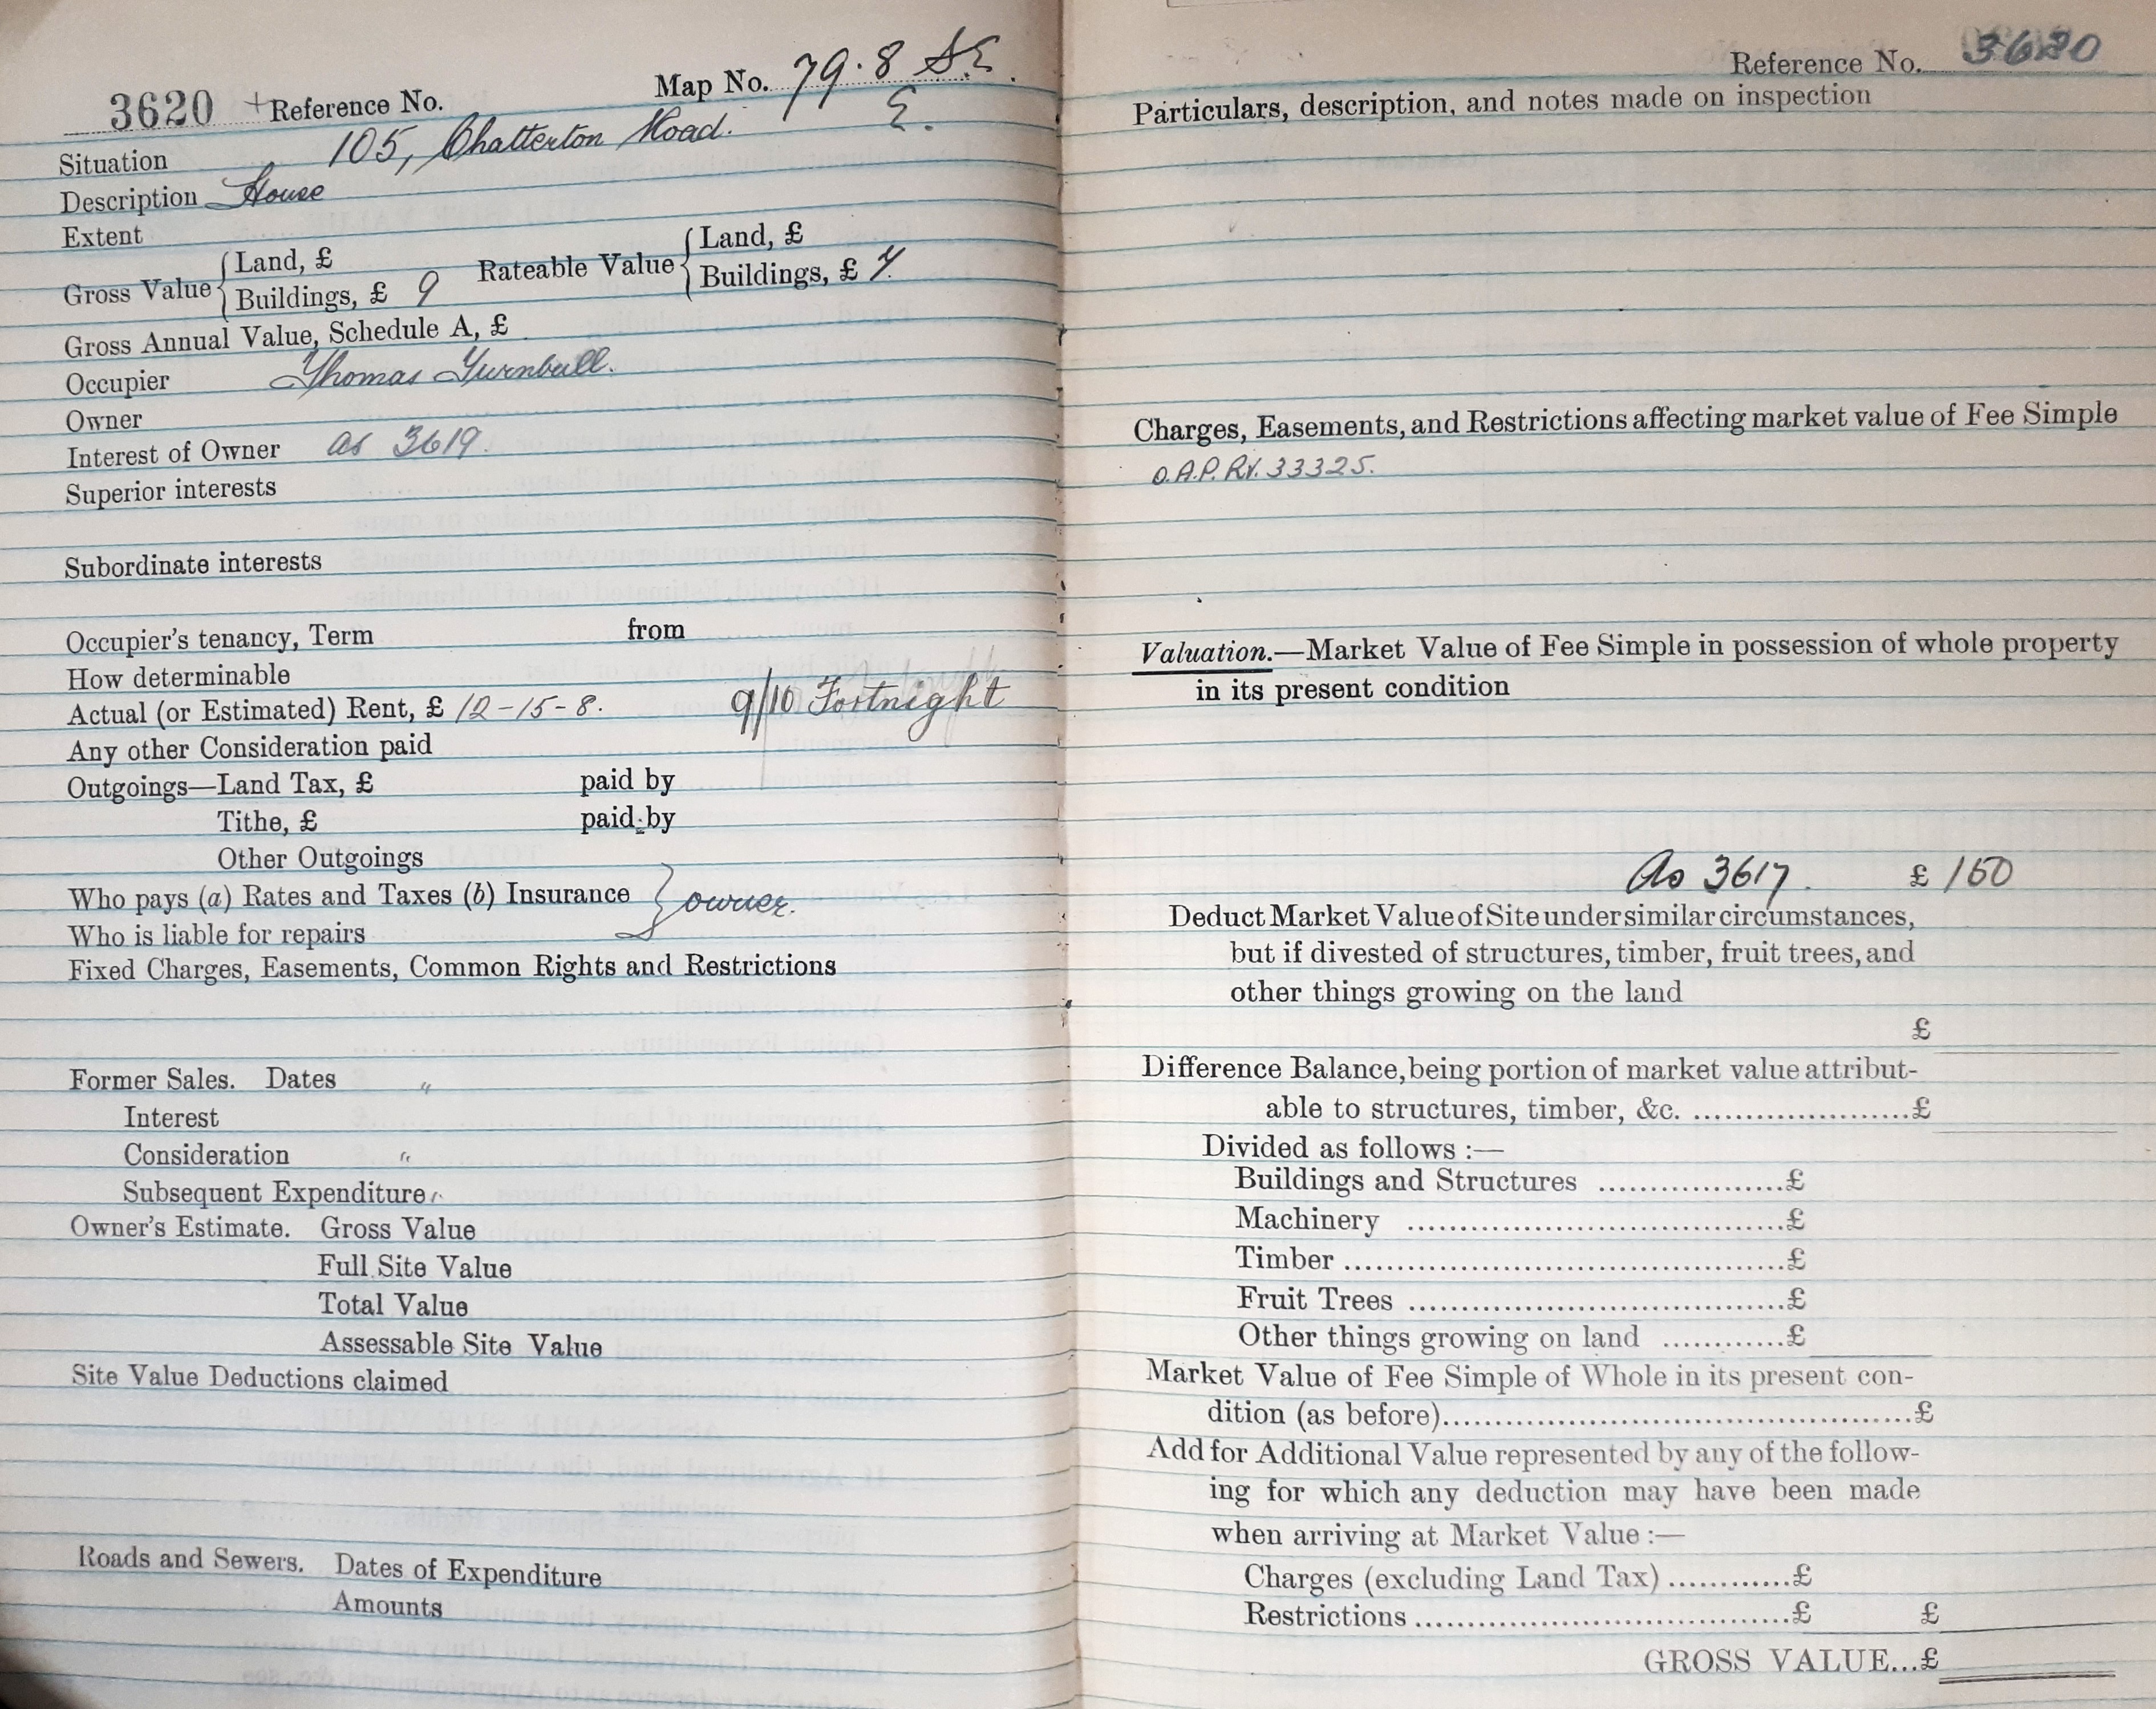 3620 Reference No. Map No. 79.8 SE
E.
Situation 105, Chatterton Road.
Description House
Extent
Gross Value { Land, £ Rateable Value { Land, £
Buildings, £ 9 Buildings, £ 7
Gross Annual Value, Schedule A, £
Occupier Thomas Turnbull.
Owner
Interest of Owner as 3619.
Superior interests
Subordinate interests
Occupier's tenancy, Term from
How determinable
Actual (or Estimated) Rent, £ 12-15-8. 9/10 Fortnight
Any other Consideration paid
Outgoings—Land Tax, £ paid by
Tithe, £ paid by
Other Outgoings
Who pays (a) Rates and Taxes (b) Insurance } owner.
Who is liable for repairs
Fixed Charges, Easements, Common Rights and Restrictions
Former Sales. Dates "
Interest
Consideration "
Subsequent Expenditure "
Owner's Estimate. Gross Value
Full Site Value
Total Value
Assessable Site Value
Site Value Deductions claimed
Roads and Sewers. Dates of Expenditure
Amounts
Reference No. 3620
Particulars, description, and notes made on inspection
Charges, Easements, and Restrictions affecting market value of Fee Simple
O.A.P. Rv. 33325.
Valuation.—Market Value of Fee Simple in possession of whole property
in its present condition
As 3617. £ 150
Deduct Market Value of Site under similar circumstances,
but if divested of structures, timber, fruit trees, and
other things growing on the land
£
Difference Balance, being portion of market value attribut-
able to structures, timber, &c. ......................£
Divided as follows :—
Buildings and Structures ...................£
Machinery .........................................£
Timber ................................................£
Fruit Trees .........................................£
Other things growing on land ............£
Market Value of Fee Simple of Whole in its present con-
dition (as before)....................................................£
Add for Additional Value represented by any of the follow-
ing for which any deduction may have been made
when arriving at Market Value :—
Charges (excluding Land Tax) ............£
Restrictions .........................................£ £
GROSS VALUE...£